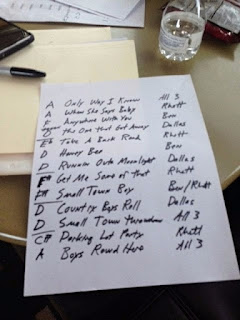 A Only Way I Know All 3
A When She Says Baby Rhett
F Anywhere With You Ben
The One that Got Away Dallas
Eb Take A Back Road Rhett
D Honey Bee Ben
D Runnin Outta Moonlight Dallas
F# Get Me Some of That Rhett
F# Small Town Boy Ben/Rhett
D Country Boys Roll Dallas
D Small Town Throwdown All 3
C# Parking Lot Party Rhett
A Boys Round Here All 3